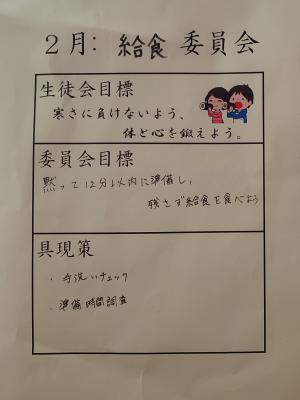 2月: 給食 委員会
生徒会目標
寒さに負けないよう、
体と心を鍛えよう。
委員会目標
黙って12分以内に準備し、
残さず給食を食べよう
具現策
・手洗いチェック
・準備時間調査